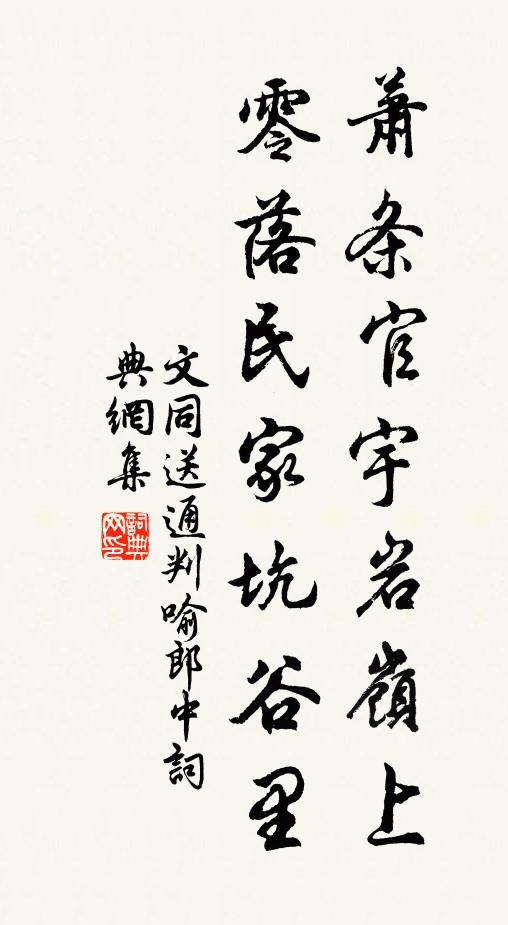 萧条官宇岩嶺上
零落民家坑谷里
文同送通判喻郎中詞
典網集
詞典
网印